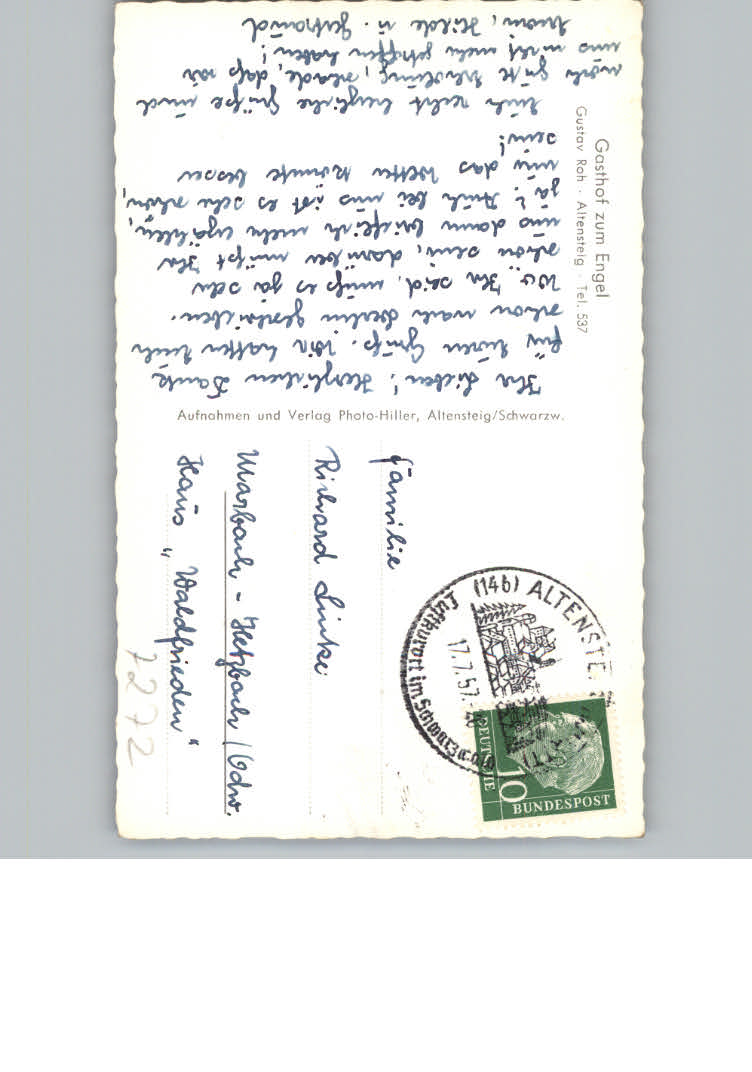 Gasthof zum Engel
Gustav Roh · Altensteig · Tel. 537
Ihr Lieben! Herzlichen Dank
für Euren Gruß. Wir hatten Euch
schon nach Berlin geschrieben.
Wo Ihr seid, muß es ja sehr
schön sein, darüber müßt Ihr
uns dann brieflich mehr erzählen,
ja? Auch bei uns ist es sehr schön,
nur das Wetter könnte besser
sein!
Euch recht herzliche Grüße und
noch gute Erholung, schade, daß wir
uns nicht mehr getroffen haben!
Hilde u. Gertraud
Aufnahmen und Verlag Photo-Hiller, Altensteig/Schwarzw.
(14b) ALTENSTE
Luftkurort im Schwarzwald
17.7.57
DEUTSCHE
BUNDESPOST
10
Familie
Richard Linke
Marbach - Hetzbach / Odw.
Haus "Waldfrieden"
7272